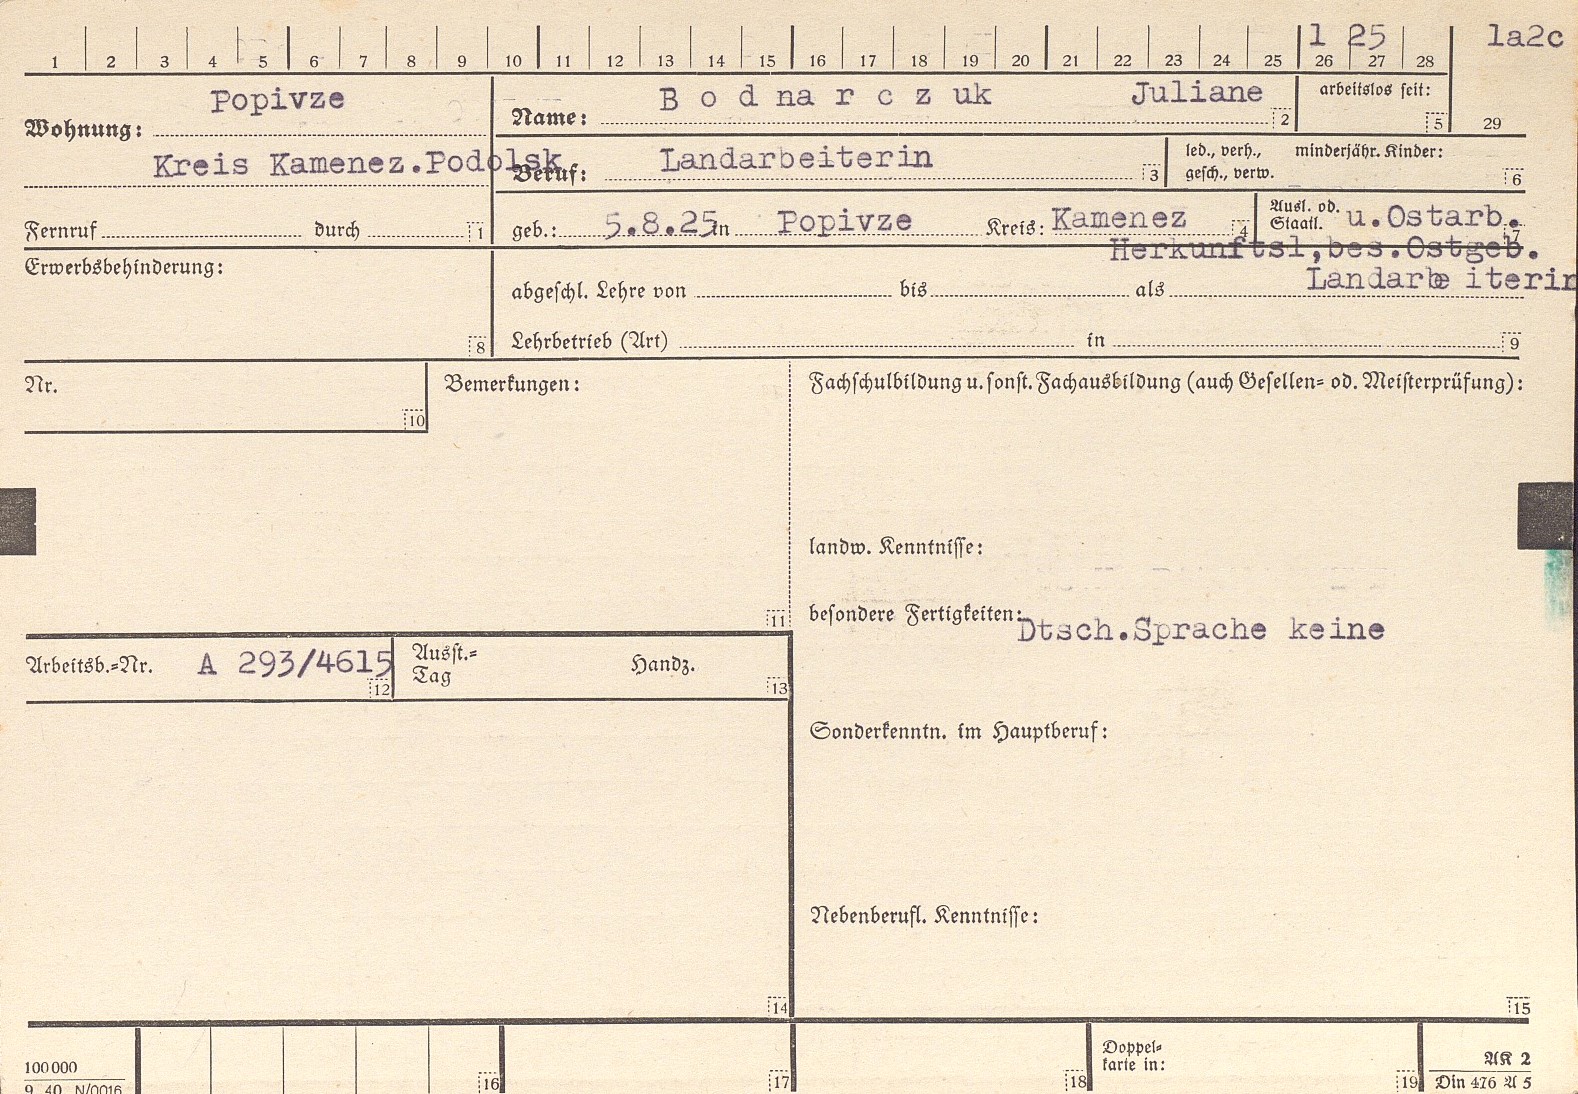 1 25 1a2c
1 2 3 4 5 6 7 8 9 10 11 12 13 14 15 16 17 18 19 20 21 22 23 24 25 26 27 28
Popivze
Wohnung:
Kreis Kamenez.Podolsk
Fernruf durch 1
Name: Bodnarczuk Juliane 2
arbeitslos seit: 5 29
Beruf: Landarbeiterin 3
led., verh., minderjähr. Kinder:
gesch., verw. 6
geb.: 5.8.25 in Popivze Kreis: Kamenez 4
Ausl. od. Staatl. u.Ostarb. 7
Herkunftsl,bes.Ostgeb.
Landarbeiterin
Erwerbsbehinderung:
8
abgeschl. Lehre von bis als
Lehrbetrieb (Art) in 9
Nr.
10
Bemerkungen:
11
Fachschulbildung u. sonst. Fachausbildung (auch Gesellen- od. Meisterprüfung):
landw. Kenntnisse:
besondere Fertigkeiten:
Dtsch.Sprache keine
Arbeitsb.-Nr. A 293/4615 12
Ausst.-
Tag
Handz.
13
Sonderkenntn. im Hauptberuf:
Nebenberufl. Kenntnisse:
14
15
100000
9. 40. N/0016
16
17
18
Doppel-
karte in:
19
AK 2
Din 476 A 5